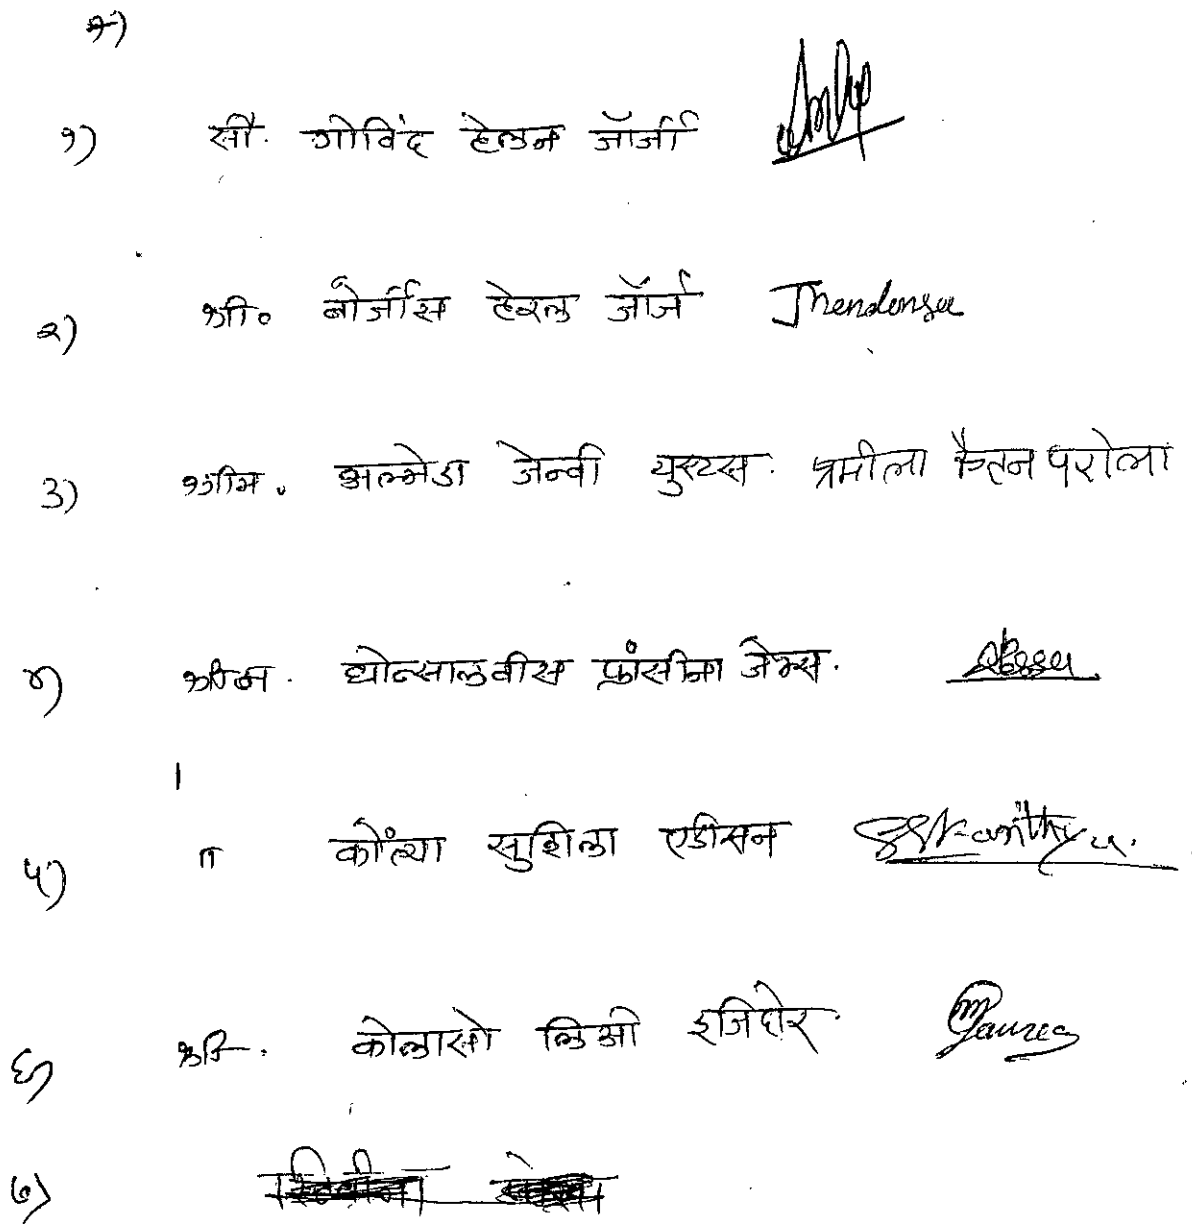 १) सौ. गोविंद हेलन जॉर्जी
२) श्री. बोर्जीस हेरल जॉर्ज Jmendonsa
३) श्रीम. अल्मेडा जेन्वी युस्टस. प्रमीला केतन परोला
४) घोन्सालवीस फ्रांसीना जेम्स.
५) " कोंत्या सुशिला एडीसन
६) श्री. कोलासो लिओ इजिदोर.
७)